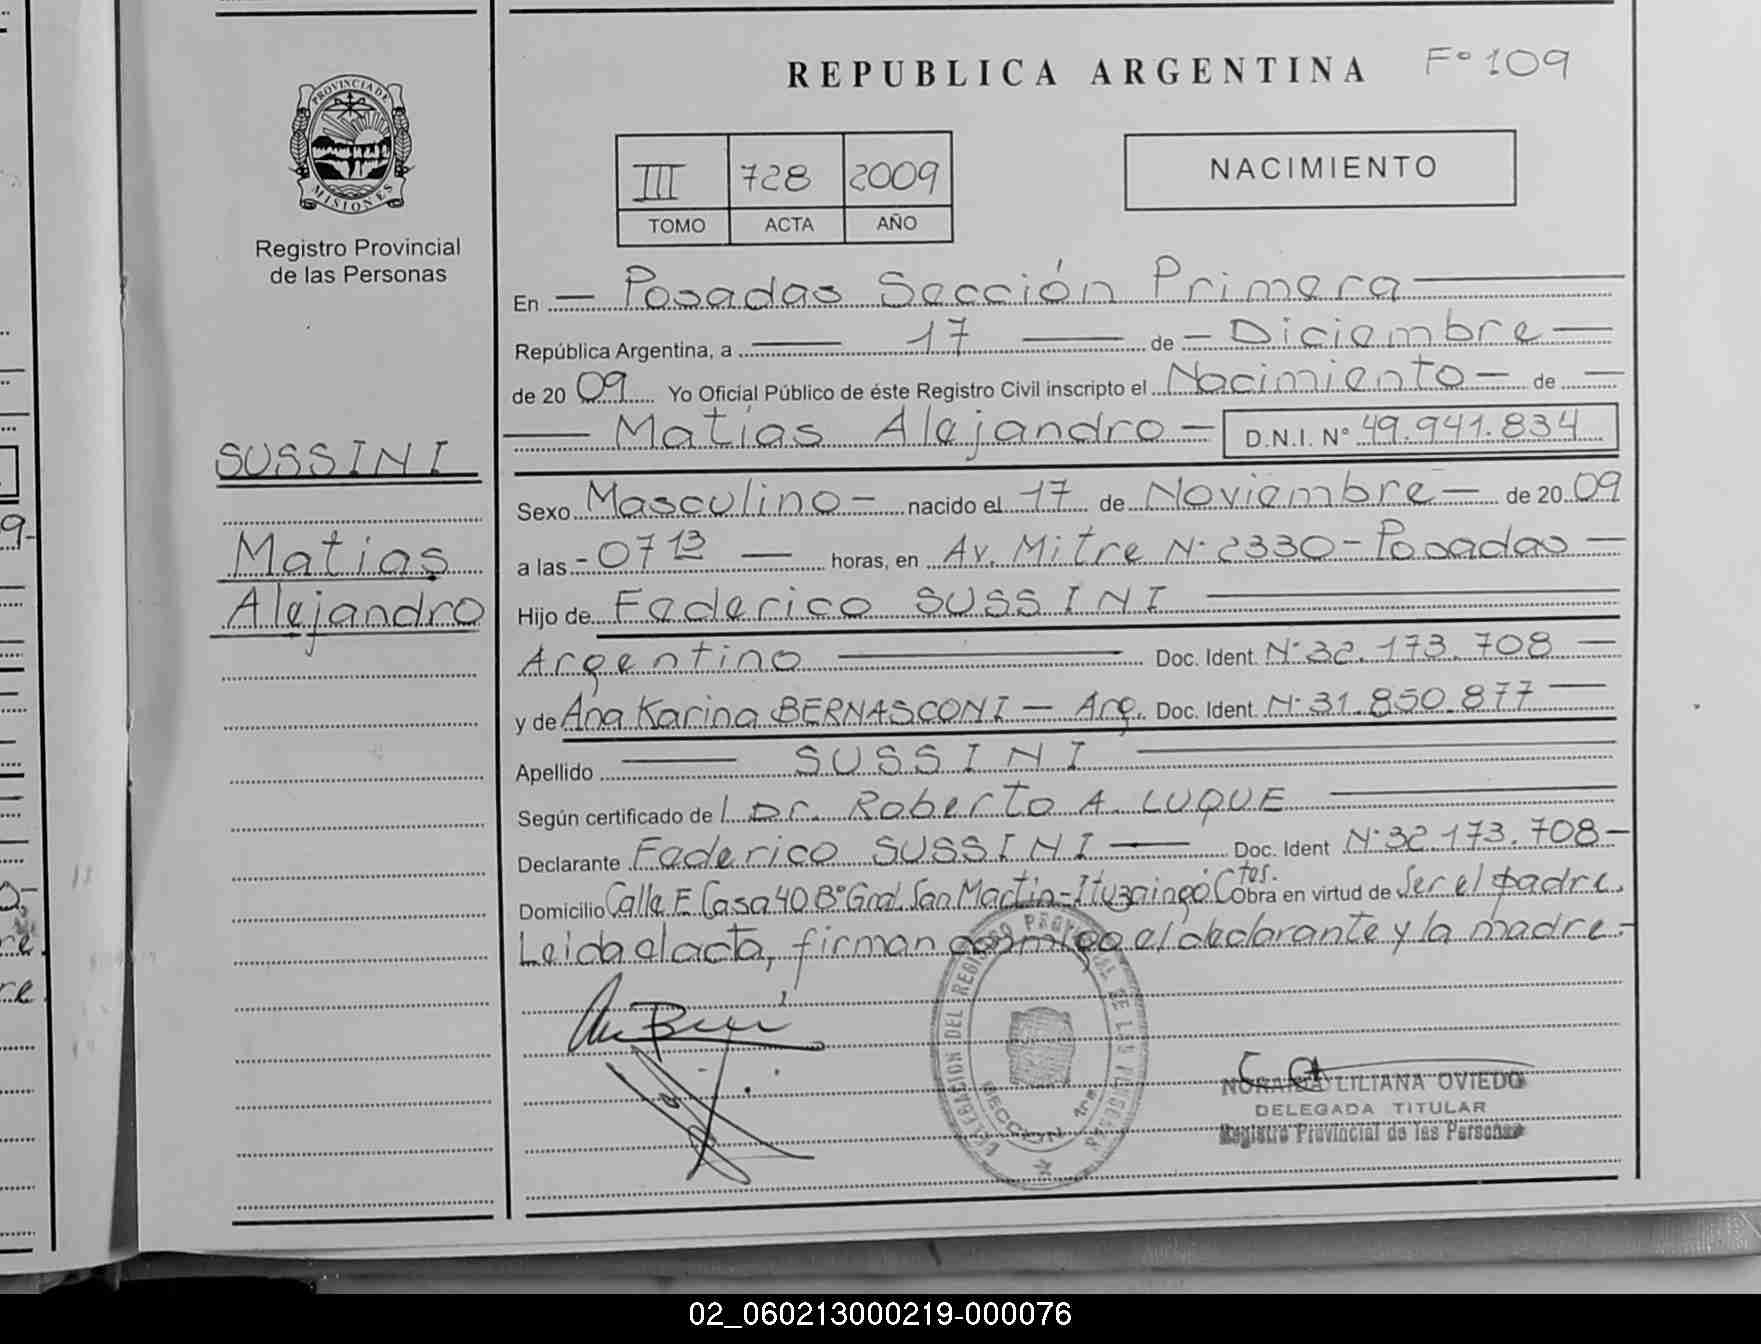 REPUBLICA ARGENTINA
Fº 109
PROVINCIA DE
MISIONES
Registro Provincial
de las Personas
III 728 2009
TOMO ACTA AÑO
NACIMIENTO
SUSSINI
Matias
Alejandro
En — Posadas Sección Primera —
República Argentina, a — 17 — de — Diciembre —
de 20 09 Yo Oficial Público de éste Registro Civil inscripto el Nacimiento — de —
— Matías Alejandro — D.N.I. Nº 49.941.834
Sexo Masculino — nacido el 17 de Noviembre — de 20 09
a las - 07 13 — horas, en Av. Mitre Nº 2330 - Posadas —
Hijo de Federico SUSSINI —
Argentino — Doc. Ident. Nº 32.173.708 —
y de Ana Karina BERNASCONI — Arg. Doc. Ident. Nº 31.850.877 —
Apellido — SUSSINI —
Según certificado de l Dr. Roberto A. LUQUE —
Declarante Federico SUSSINI — Doc. Ident Nº 32.173.708 —
Domicilio Calle F Casa 40 Bº Gral. San Martin - Ituzaingó Ctes. Obra en virtud de Ser el padre.
Leida el acta, firman conmigo el declarante y la madre.-
DELEGACION DEL REGISTRO PROVINCIAL DE LAS PERSONAS
SECCION 1ra
LILIANA OVIEDO
DELEGADA TITULAR
Registro Provincial de las Personas
9-
re.
re.
02_060213000219-000076